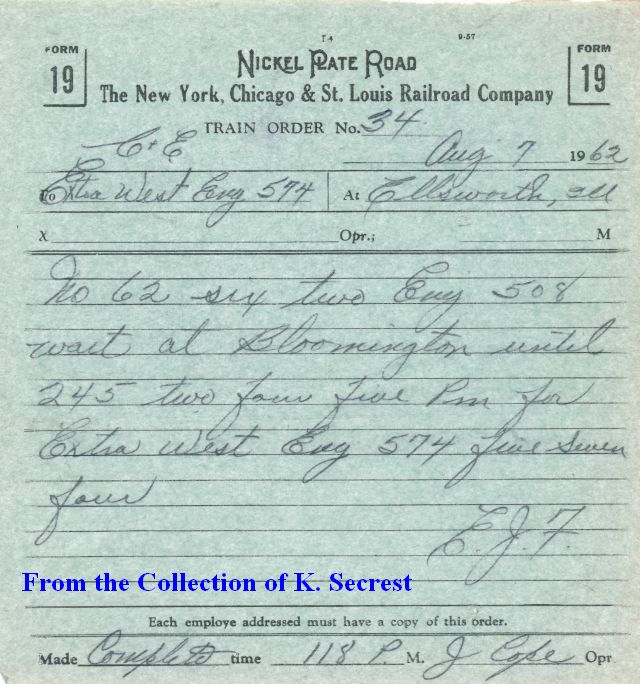 T4 9-57
FORM 19 NICKEL PLATE ROAD FORM 19
The New York, Chicago & St. Louis Railroad Company
TRAIN ORDER No. 34
C & E Aug 7 1962
To Extra West Eng 574 At Ellsworth, Ill
X Opr.; M
No 62 six two Eng 508
wait at Bloomington until
245 two four five Pm for
Extra West Eng 574 five seven
four
E.J.F.
From the Collection of K. Secrest
Each employe addressed must have a copy of this order.
Made Complete time 118 P. M. J Cope Opr